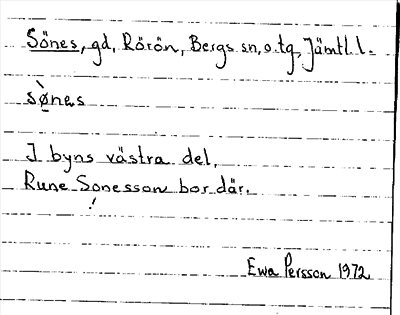 Sönes, gd, Rörön, Bergs sn, o. tg, Jämtl. l.
sø̀nes
I byns västra del.
Rune Sonesson bor där.
!
Ewa Persson 1972